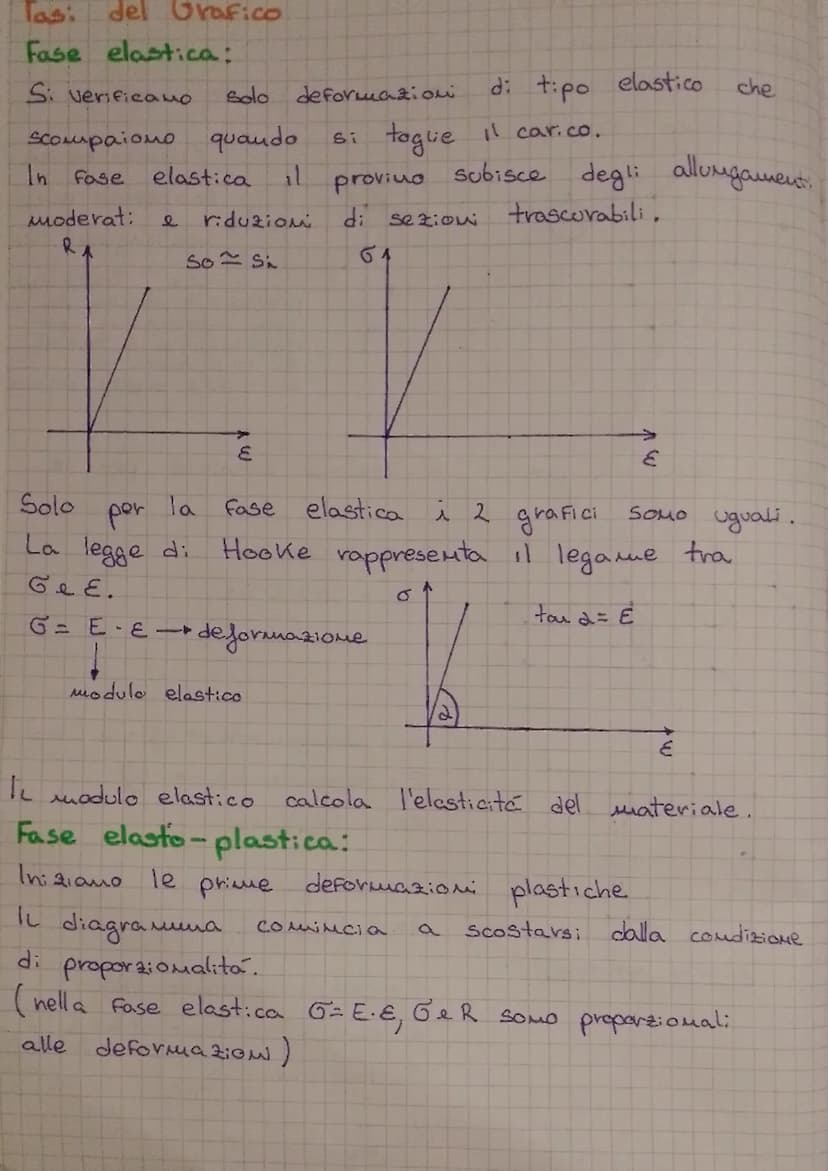 Fasi del Grafico
Fase elastica:
Si verificano solo deformazioni di tipo elastico che
scompaiono quando si toglie il carico.
In fase elastica il provino subisce degli allungamenti
moderati e riduzioni di sezioni trascurabili.
R
S0 ≃ Si
σ
ε
ε
Solo per la fase elastica i 2 grafici sono uguali.
La legge di Hooke rappresenta il legame tra
σ e ε.
σ
tan α = E
σ = E · ε → deformazione
modulo elastico
α
ε
Il modulo elastico calcola l'elasticità del materiale.
Fase elasto-plastica:
Iniziano le prime deformazioni plastiche
Il diagramma comincia a scostarsi dalla condizione
di proporzionalità.
(nella fase elastica σ = E·ε, σ e R sono proporzionali
alle deformazioni)